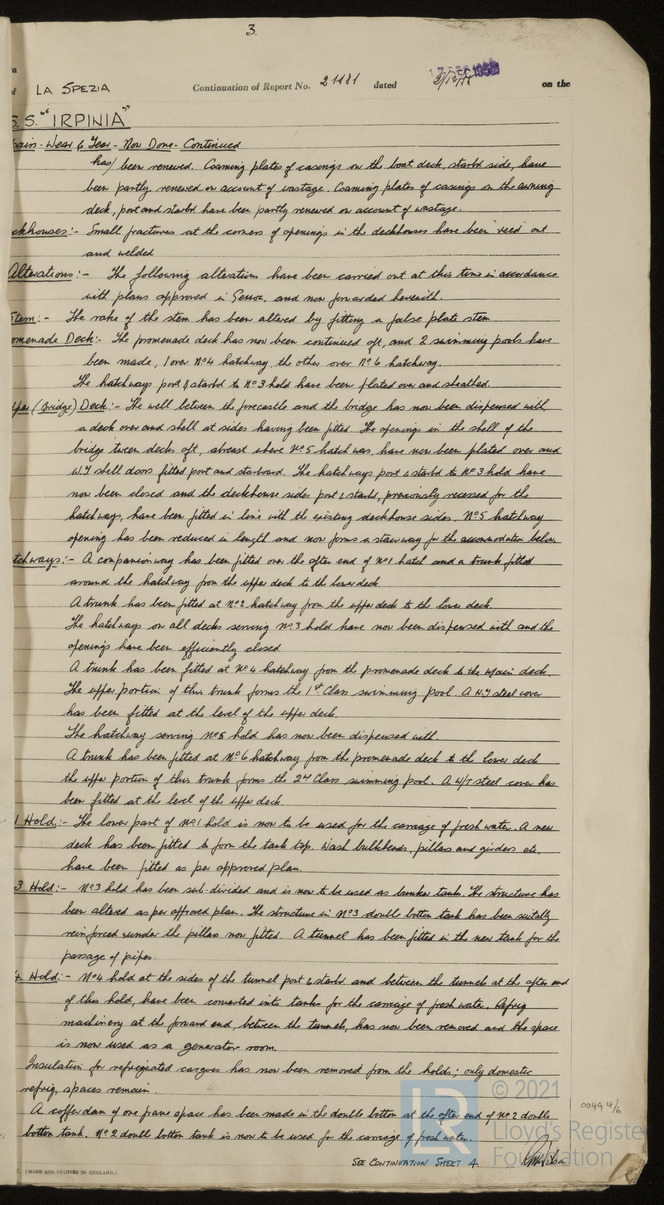 3.
LA SPEZIA Continuation of Report No. 21181 dated on the
S.S. "IRPINIA"
Wear & Tear - Now Done - Continued
has/ been renewed. Coaming plates of casings on the boat deck, starbd side, have
been partly renewed on account of wastage. Coaming plates of casings on the awning
deck, port and starbd have been partly renewed on account of wastage.
ckhouses:- Small fractures at the corners of openings in the deckhouses have been veed out
and welded
Alterations:- The following alterations have been carried out at this time in accordance
with plans approved in Genoa, and now forwarded herewith.
Stem:- The rake of the stem has been altered by fitting a false plate stem
omenade Deck:- The promenade deck has now been continued aft, and 2 swimming pools have
been made, 1 over No 4 hatchway, the other over No 6 hatchway.
The hatchways port & starbd to No 3 hold have been plated over and sheathed.
(Bridge) Deck:- The well between the forecastle and the bridge has now been dispensed with
a deck over and shell at sides having been fitted. The openings in the shell of the
bridge tween decks aft, abreast where No 5 hatch was, have now been plated over and
W.T shell doors fitted port and starboard. The hatchways port & starbd to No 3 hold have
now been closed and the deckhouse sides port & starbd, previously recessed for the
hatchways, have been fitted in line with the existing deckhouse sides. No 5 hatchway
opening has been reduced in length and now forms a stairway for the accomodation below
tchways:- A companionway has been fitted over the after end of No 1 hatch and a trunk fitted
around the hatchway from the upper deck to the lower deck
A trunk has been fitted at No 2 hatchway from the upper deck to the lower deck.
The hatchways on all decks serving No 3 hold have now been dispensed with and the
openings have been efficiently closed
A trunk has been fitted at No 4 hatchway from the promenade deck to the main deck.
The upper portion of this trunk forms the 1st Class swimming pool. A W.T steel cover
has been fitted at the level of the upper deck.
The hatchway serving No 5 hold has now been dispensed with.
A trunk has been fitted at No 6 hatchway from the promenade deck to the lower deck
the upper portion of this trunk forms the 2nd Class swimming pool. A W/T steel cover has
been fitted at the level of the upper deck.
1 Hold:- The lower part of No 1 hold is now to be used for the carriage of fresh water. A new
deck has been fitted to form the tank top. Wash bulkheads, pillars and girders etc,
have been fitted as per approved plan.
3 Hold:- No 3 hold has been sub-divided and is now to be used as bunker tanks. The structure has
been altered as per approved plan. The structure in No 3 double bottom tank has been suitably
reinforced under the pillars now fitted. A tunnel has been fitted in the new tank for the
passage of pipes.
4 Hold:- No 4 hold at the sides of the tunnel port & starbd and between the tunnels at the after end
of this hold, have been converted into tanks for the carriage of fresh water. Refrig
machinery at the forward end, between the tunnels, has now been removed and the space
is now used as a generator room.
Insulation for refrigerated cargoes has now been removed from the holds; only domestic
refrig, spaces remain.
A cofferdam of one frame space has been made in the double bottom at the after end of No 2 double
bottom tank. No 2 double bottom tank is now to be used for the carriage of fresh water.
SEE CONTINUATION SHEET 4.
(MADE AND PRINTED IN ENGLAND.)
0049 4/6
LR © 2021
Lloyd's Register
Foundation